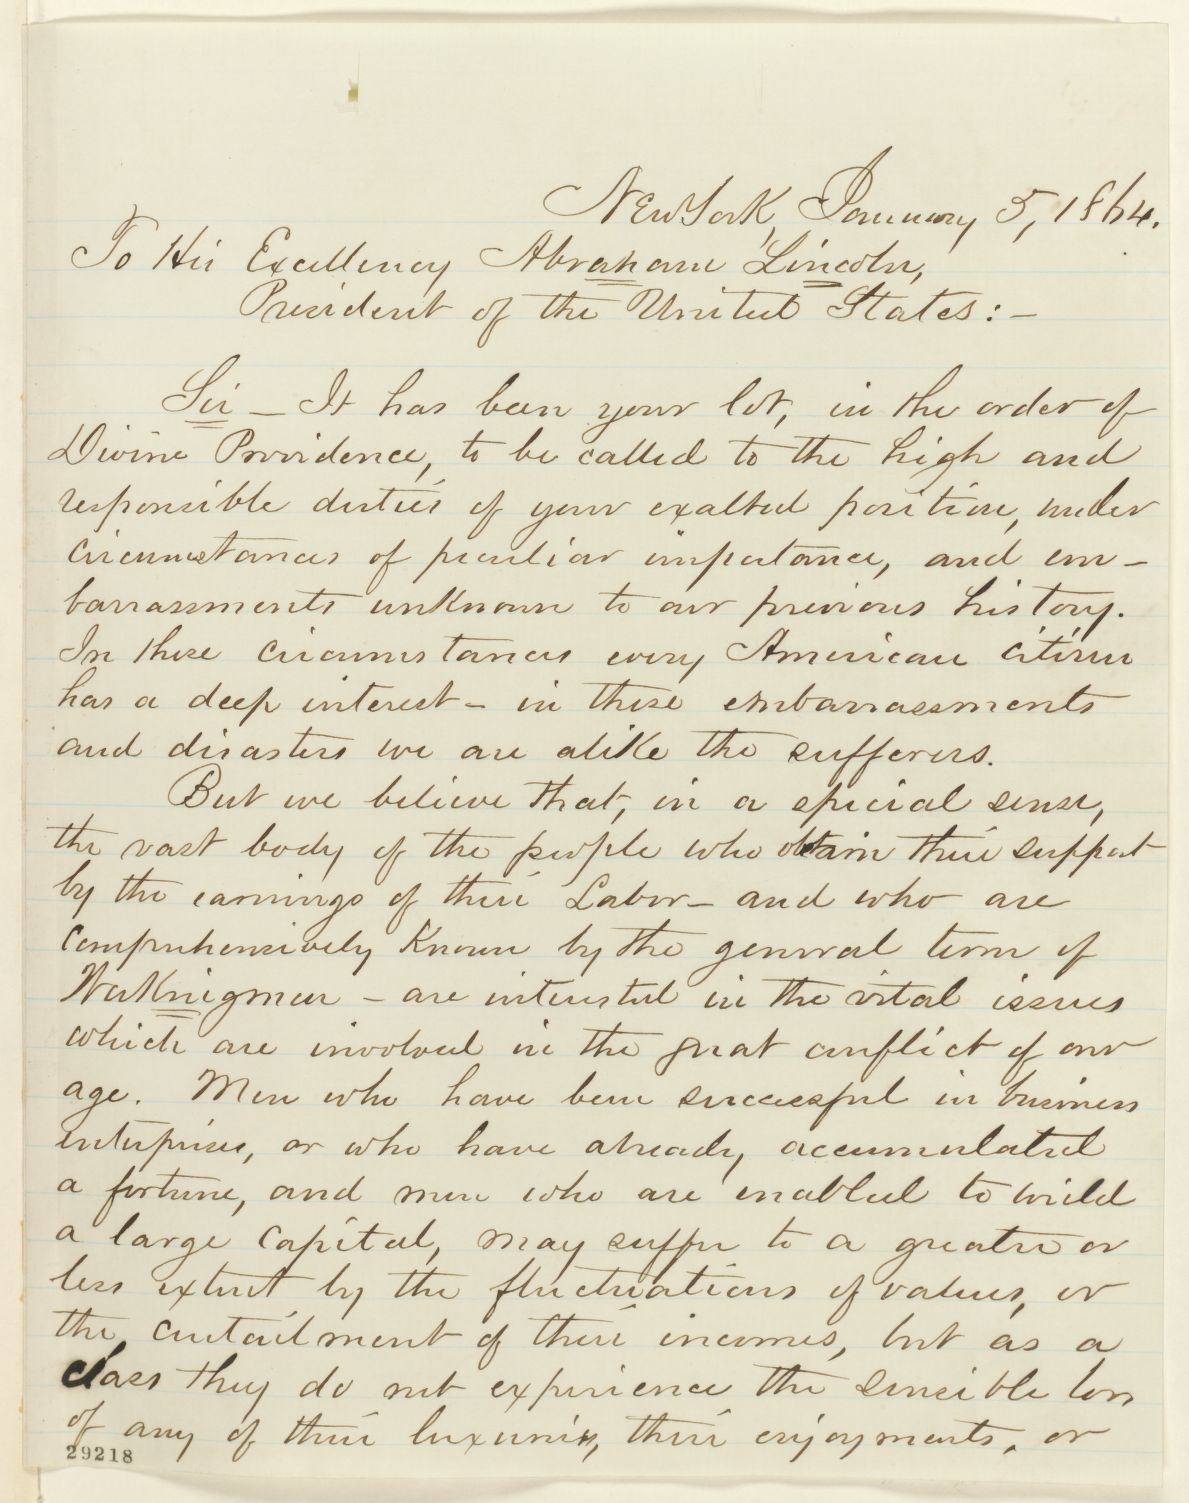 New York, January 5, 1864.
To His Excellency Abraham Lincoln,
President of the United States:—
Sir — It has been your lot, in the order of
Divine Providence, to be called to the high and
responsible duties of your exalted position, under
circumstances of peculiar importance, and em-
barrassments unknown to our previous history.
In these circumstances every American citizen
has a deep interest — in these embarrassments
and disasters we are alike the sufferers.
But we believe that, in a special sense,
the vast body of the people who obtain their support
by the earnings of their Labor — and who are
comprehensively known by the general term of
Workingmen — are interested in the vital issues
which are involved in the great conflict of our
age. Men who have been successful in business
enterprises, or who have already accumulated
a fortune, and men who are enabled to wield
a large capital, may suffer to a greater or
less extent by the fluctuations of values, or
the curtailment of their incomes, but as a
class they do not experience the sensible loss
of any of their luxuries, their enjoyments, or
29218